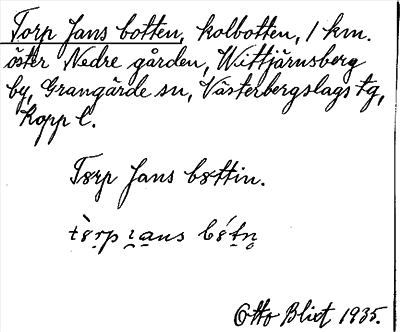 Torp Jans botten, kolbotten, 1 km.
öster Nedre gården, Wittjärnsberg
by, Grangärde sn, Västerbergslags tg,
Kopp l.
Tørp Jans bøttin.
Otto Blixt 1935.